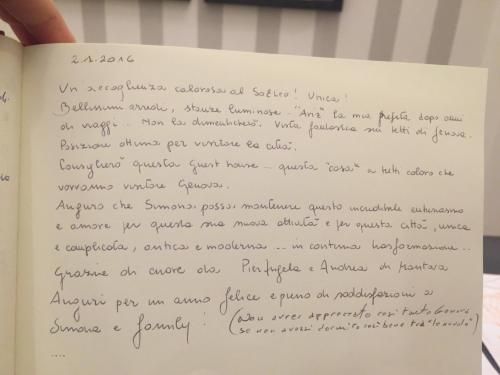 2.1.2016
Un accoglienza calorosa al Soleo! Unica!
Bellissimi arredi, stanze luminose. "Aria" la mia preferita dopo anni
di viaggi... Non la dimenticherò. Vista fantastica sui tetti di Genova.
Posizione ottima per visitare la città.
Consiglierò questa Guest house... questa "casa" a tutti coloro che
vorranno visitare Genova.
Auguro che Simona possa mantenere questo incredibile entusiasmo
e amore per questa sua nuova attività e per questa città, unica
e complicata, antica e moderna... in continua trasformazione..
Grazie di cuore da Pierangela e Andrea di Mantova
Auguri per un anno felice e pieno di soddisfazioni a
Simona e family! (Non avrei apprezzato così tanto Genova
se non avessi dormito così bene tra "le nuvole")
....